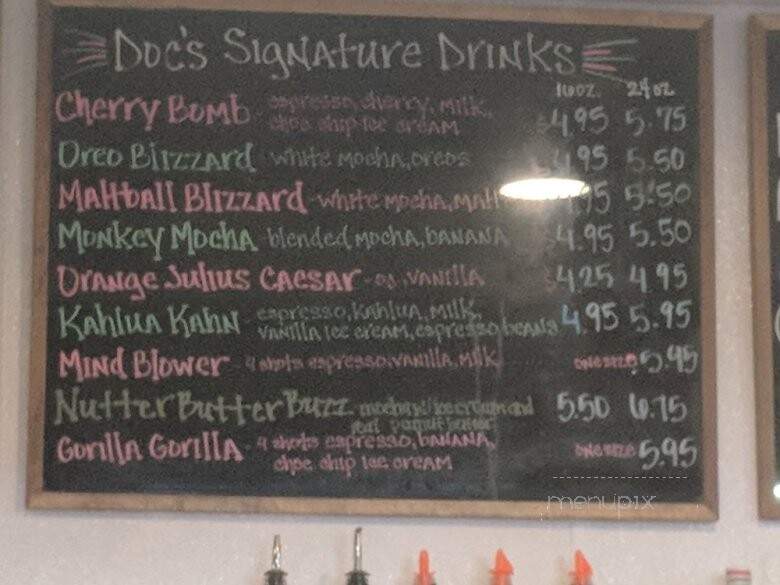 Doc's Signature Drinks
16oz. 24oz
Cherry Bomb - espresso, cherry, milk, 4.95 5.75
choc chip ice cream
Oreo Blizzard - white mocha, oreos 4.95 5.50
Maltball Blizzard - white mocha, malt 95 5.50
Monkey Mocha - blended mocha, banana 4.95 5.50
Orange Julius Caesar - oj, vanilla 4.25 4.95
Kahlua Kahn - espresso, kahlua, milk, 4.95 5.95
vanilla ice cream, espresso beans
Mind Blower - 4 shots espresso, vanilla, milk one size 5.95
Nutter Butter Buzz mocha w/ ice cream and 5.50 6.75
real peanut butter
Gorilla Gorilla - 4 shots espresso, banana, one size 5.95
choc chip ice cream
menupix